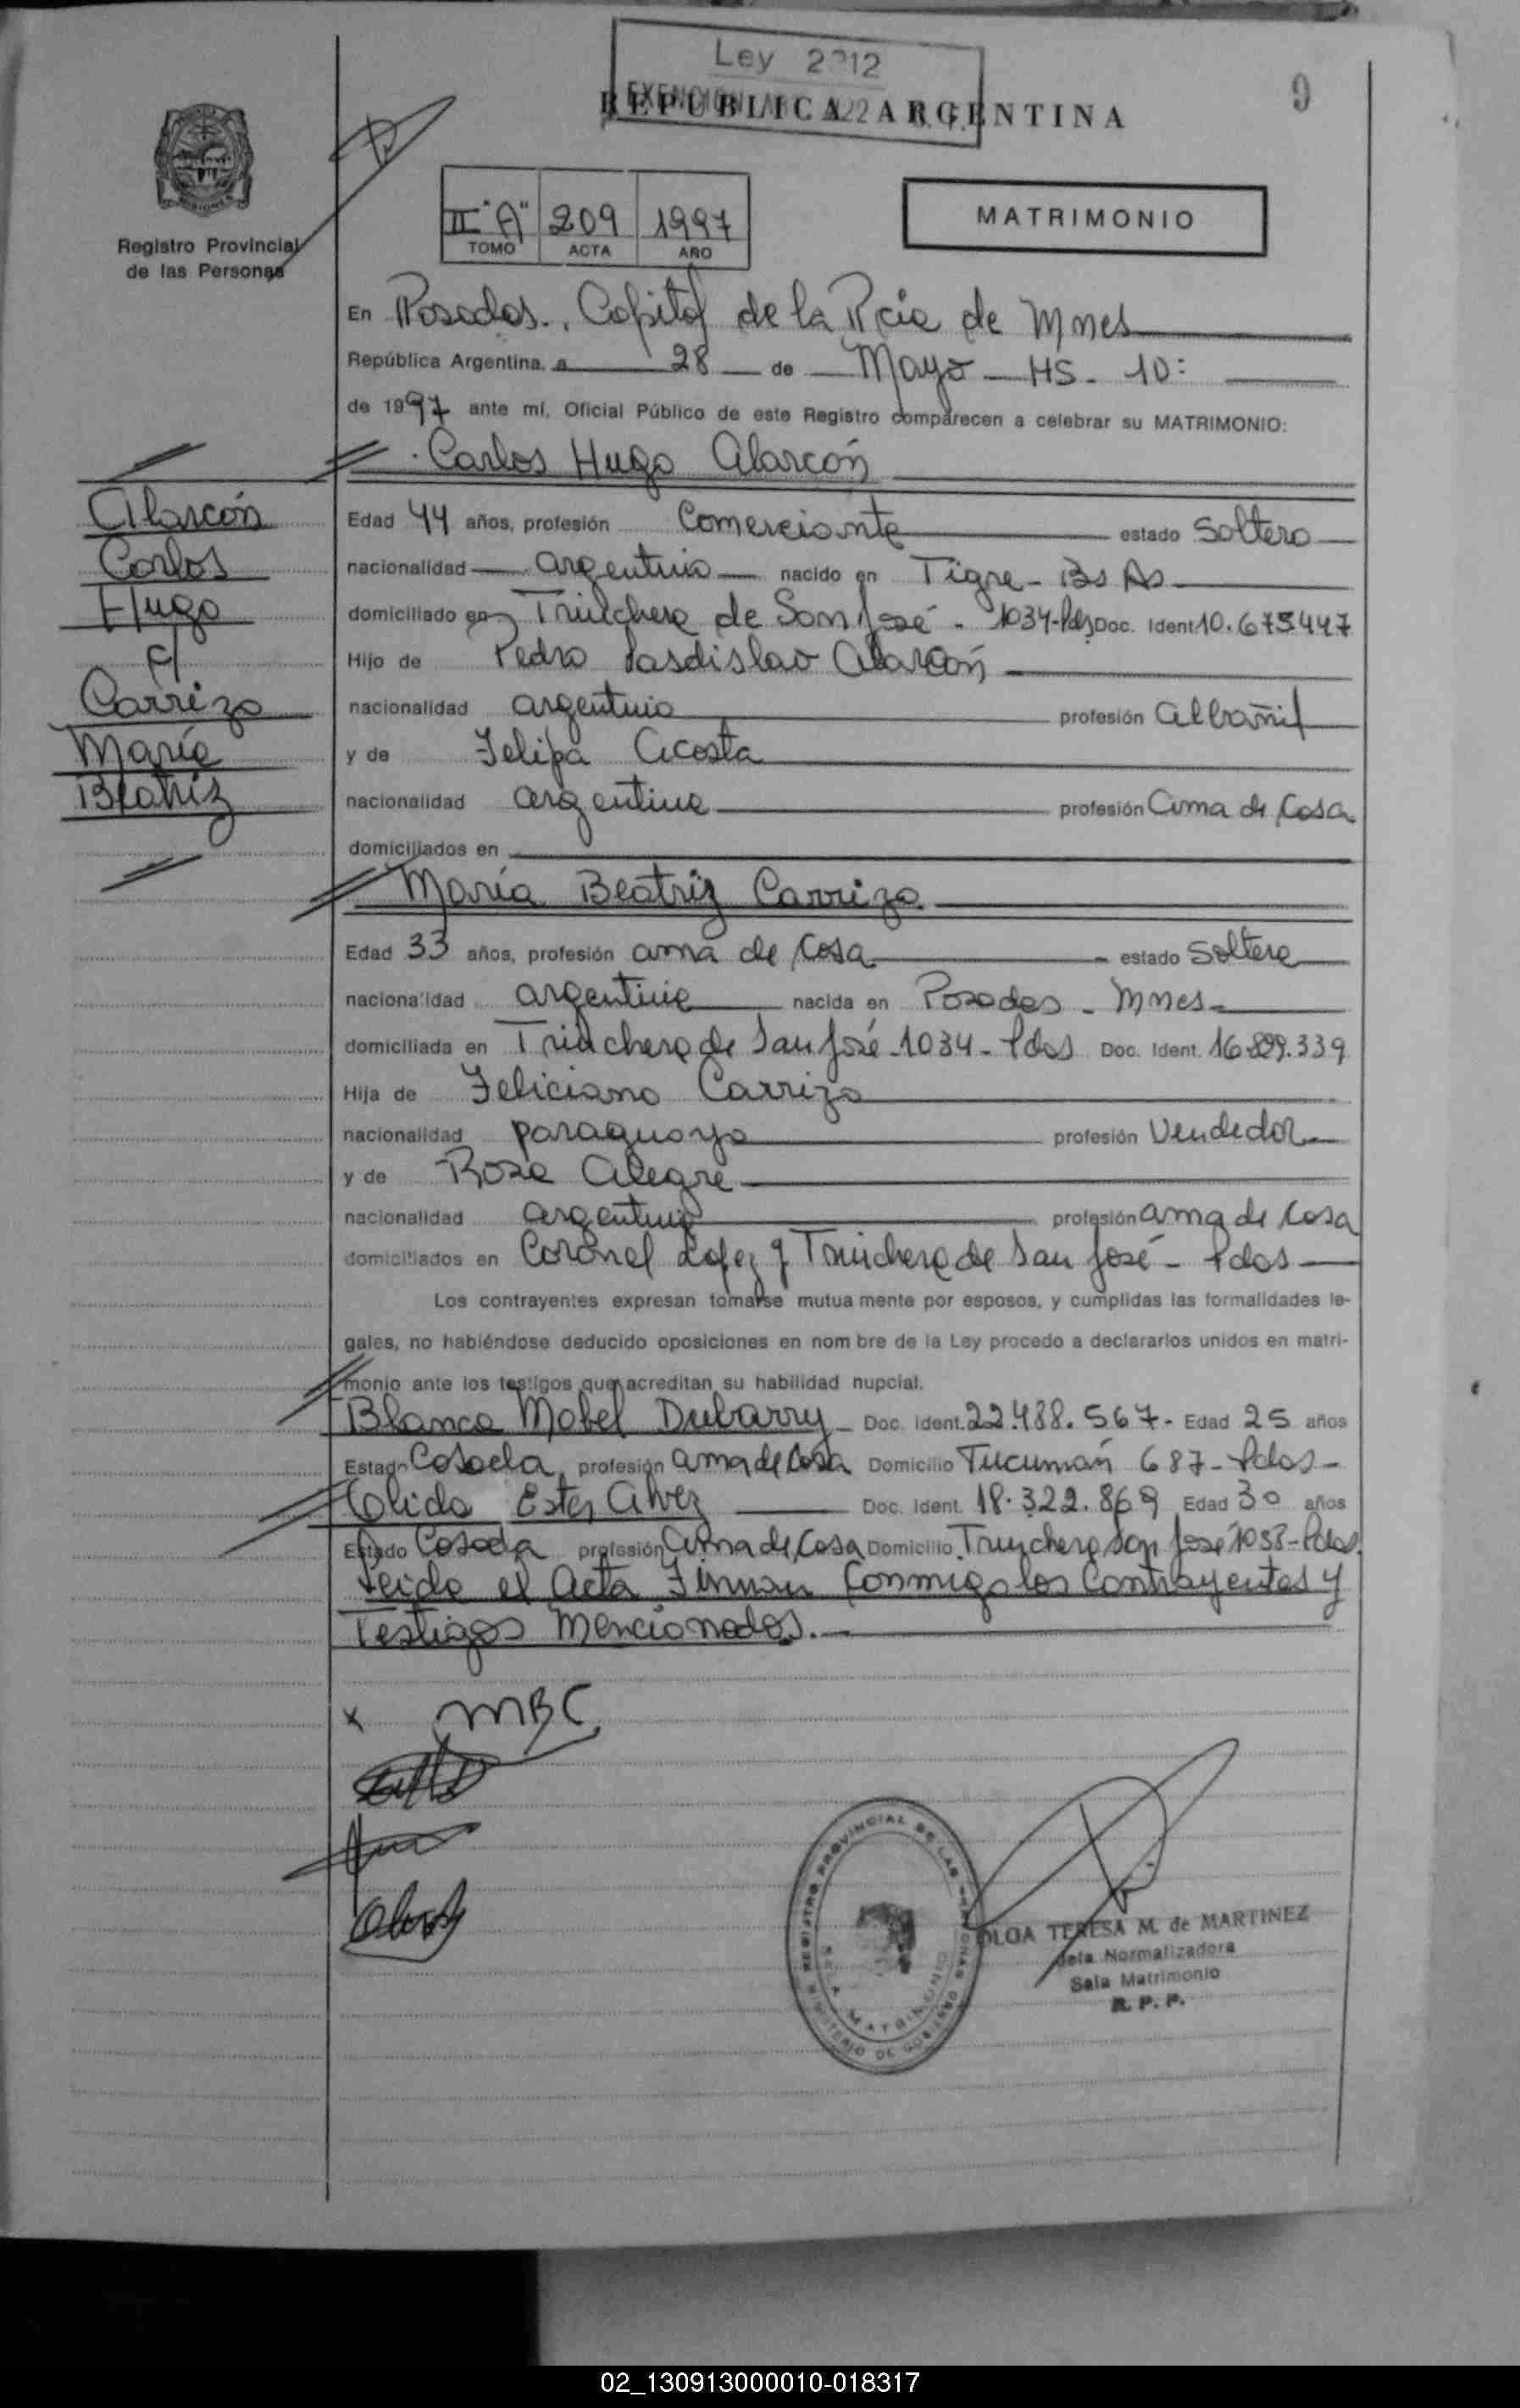 Ley 2212
REPUBLICA ARGENTINA
9
Registro Provincial
de las Personas
II "A" 209 1997
TOMO ACTA AÑO
MATRIMONIO
En Posadas., Capital de la Pcia de Mnes
República Argentina, a 28 de Mayo - HS. 10:
de 1997 ante mí, Oficial Público de este Registro comparecen a celebrar su MATRIMONIO:
Carlos Hugo Alarcón
Alarcón
Carlos
Hugo
c/
Carrizo
María
Beatriz
Edad 44 años, profesión Comerciante estado Soltero
nacionalidad argentina nacido en Tigre - Bs As
domiciliado en Trinchera de San José - 1034-Pdas Doc. Ident. 10.675447
Hijo de Pedro Alarcón
nacionalidad argentina profesión Albañil
y de Felipa Acosta
nacionalidad argentina profesión Ama de Casa
domiciliados en
María Beatriz Carrizo
Edad 33 años, profesión ama de Casa estado Soltera
nacionalidad argentina nacida en Posadas - Mnes-
domiciliada en Trinchera de San José - 1034 - Pdas Doc. Ident. 16.829.339
Hija de Feliciano Carrizo
nacionalidad paraguaya profesión Vendedor
y de Rosa Alegre
nacionalidad argentina profesión ama de casa
domiciliados en Coronel Lopez y Trinchera de San José - Pdas
Los contrayentes expresan tomarse mutua mente por esposos, y cumplidas las formalidades le-
gales, no habiéndose deducido oposiciones en nom bre de la Ley procedo a declararlos unidos en matri-
monio ante los testigos que acreditan su habilidad nupcial.
Blanca Mabel Dubarry - Doc. Ident. 22.488.567- Edad 25 años
Estado Casada profesión ama de Casa Domicilio Tucumán 687 - Pdas -
Ester Alvez Doc. Ident. 18.322.869 Edad 30 años
Estado Casada profesión Ama de Casa Domicilio Trinchera San José 1038 - Pdas.
Leida el Acta Firman Conmigo los Contrayentes y
Testigos Mencionados.
x MBC
REGISTRO PROVINCIAL DE LAS PERSONAS
SALA MATRIMONIO
MINISTERIO DE GOBIERNO
OLGA TERESA M. de MARTINEZ
Jefa Normalizadora
Sala Matrimonio
R. P. P.
02_130913000010-018317